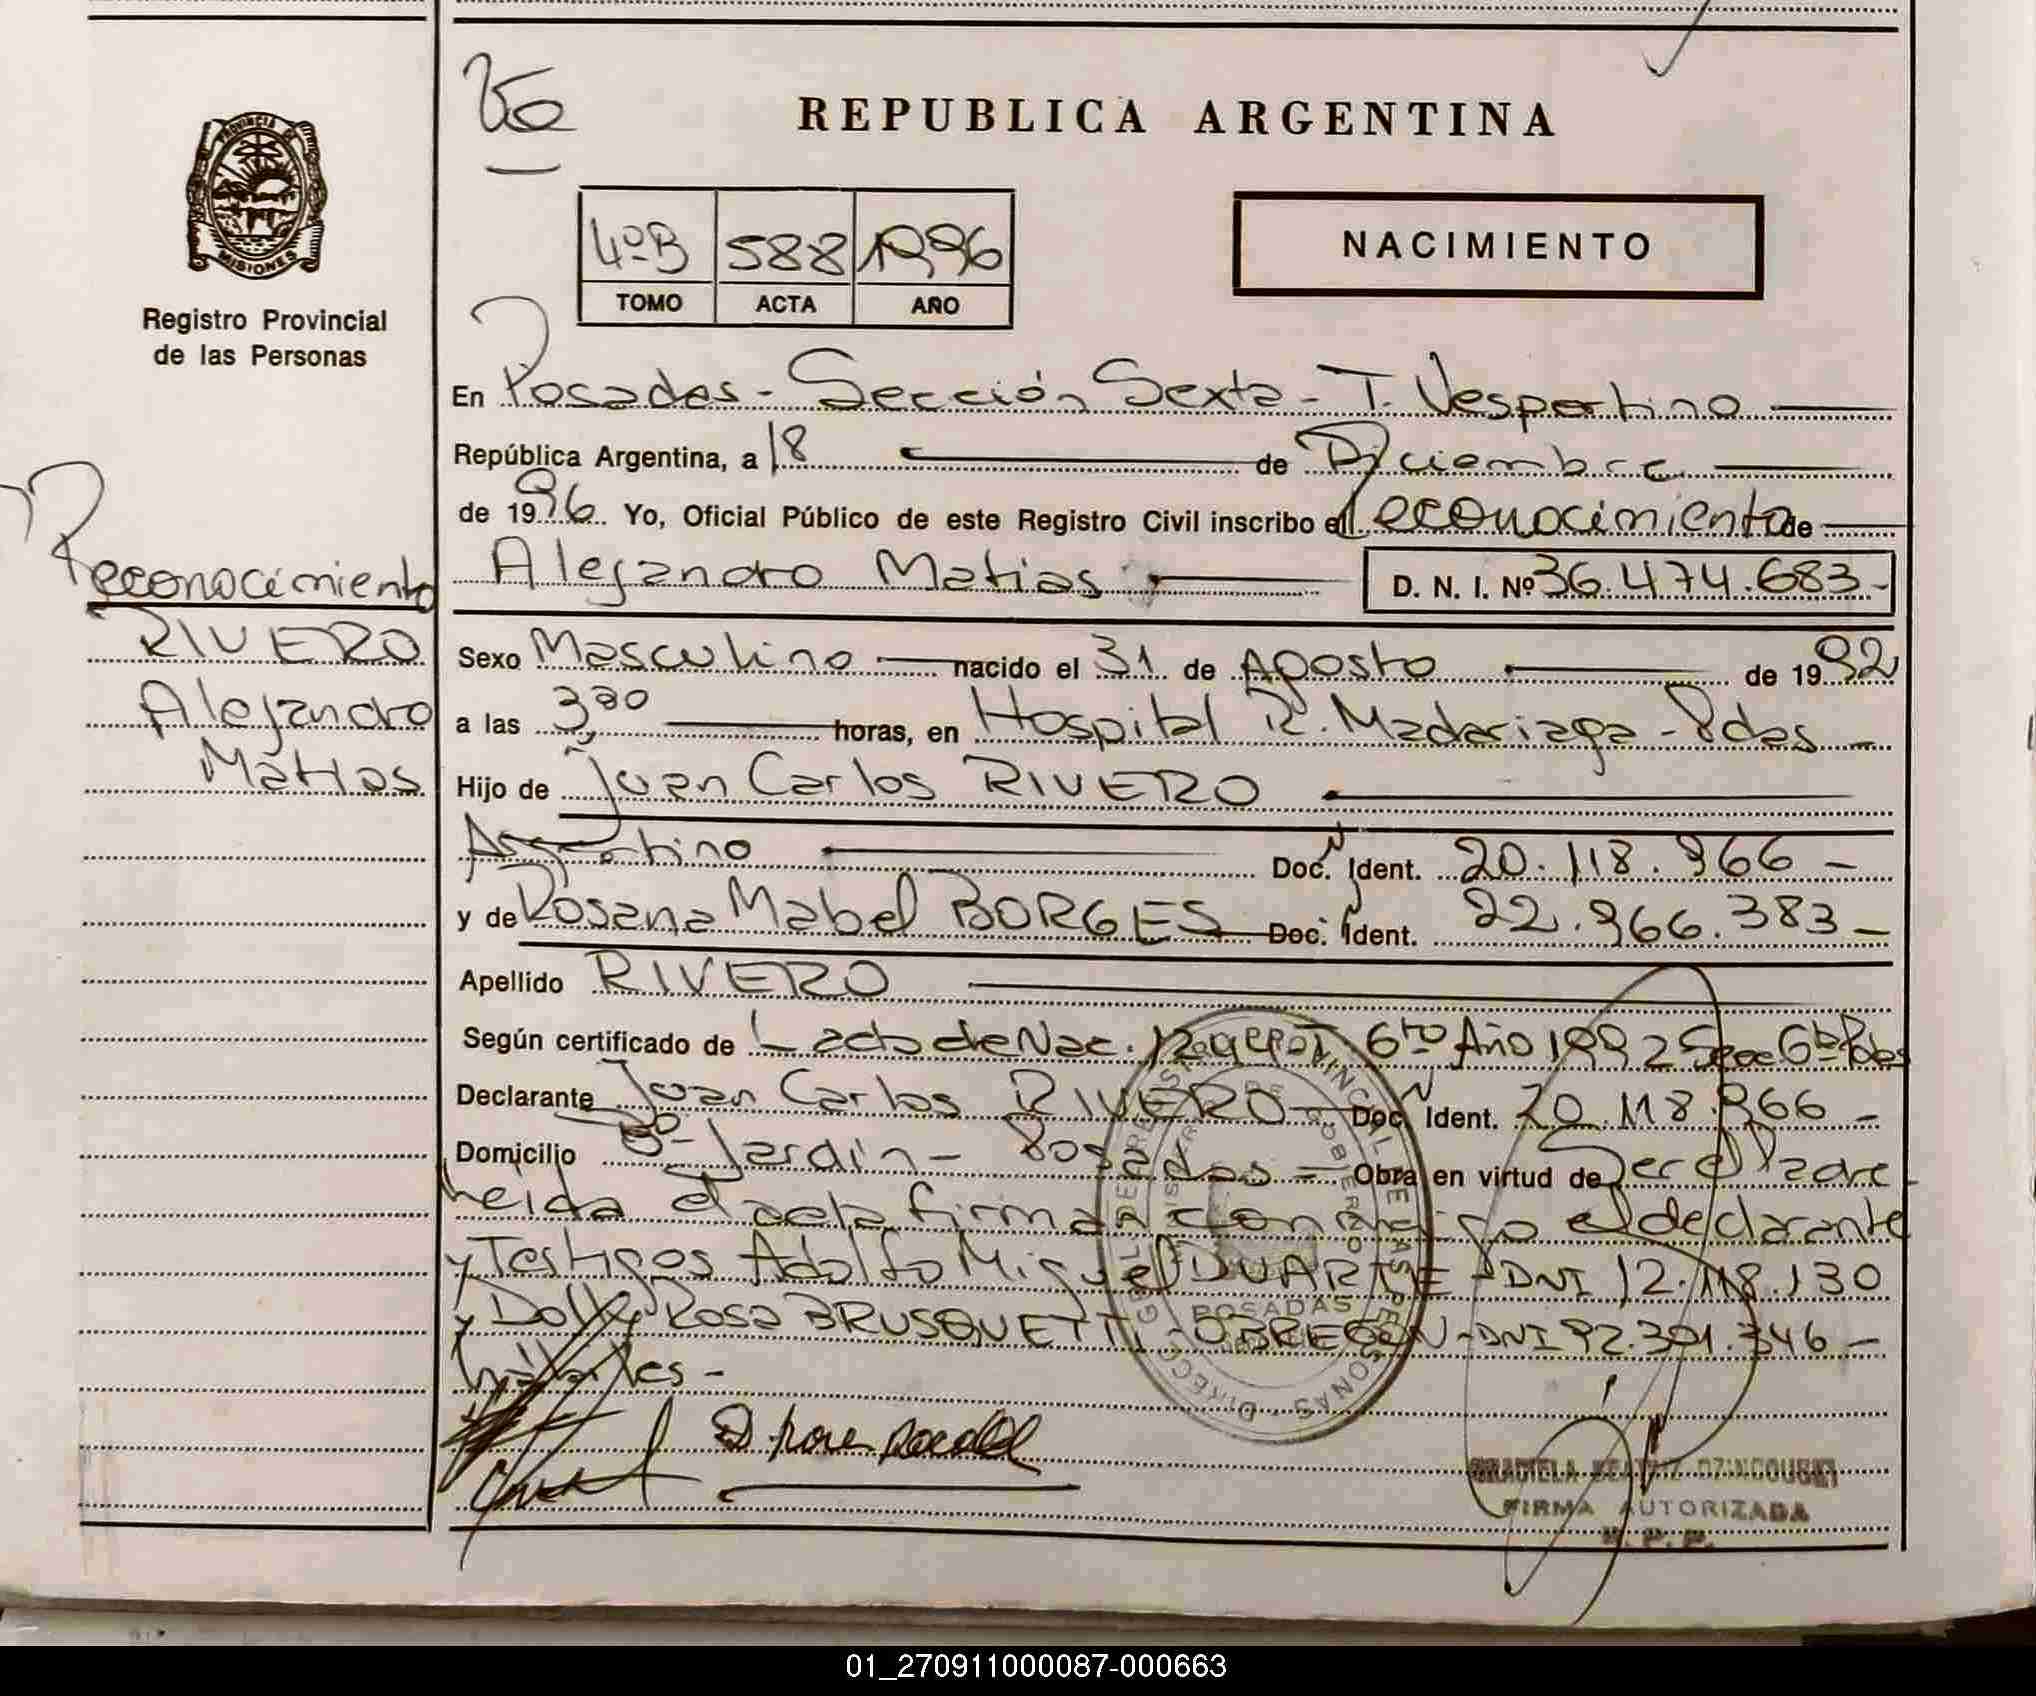 REPUBLICA ARGENTINA
PROVINCIA DE MISIONES
Registro Provincial
de las Personas
4º B 588 1996
TOMO ACTA AÑO
NACIMIENTO
En Posadas - Sección Sexta - T. Vespertino
República Argentina, a 18 de Diciembre
de 1996 Yo, Oficial Público de este Registro Civil inscribo el Reconocimiento de
Alejandro Matias D. N. I. Nº 36.474.683-
Reconocimiento
RIVERO
Alejandro
Matias
Sexo Masculino nacido el 31 de Agosto de 1992
a las 3,00 horas, en Hospital R. Madariaga - Pdas -
Hijo de Juan Carlos RIVERO
Argentino Doc. N Ident. 20.118.966 -
y de Rosana Mabel BORGES Doc. N Ident. 22.966.383 -
Apellido RIVERO
Según certificado de L acta de Nac. 6to Año 1992 Secc 6ta Pdas
Declarante Juan Carlos RIVERO Doc. N Ident. 20.118.966 -
Domicilio Bº Jardin - Posadas - Obra en virtud de Ser el Padre
Leida el acta firman conmigo el declarante
y Testigos Adolfo Miguel DUARTE - DNI 12.118.130
y Rosa BRUSQUETTI - OBREGON - DNI 92.301.346 -
POSADAS
FIRMA AUTORIZADA
R. P. P.
01_270911000087-000663